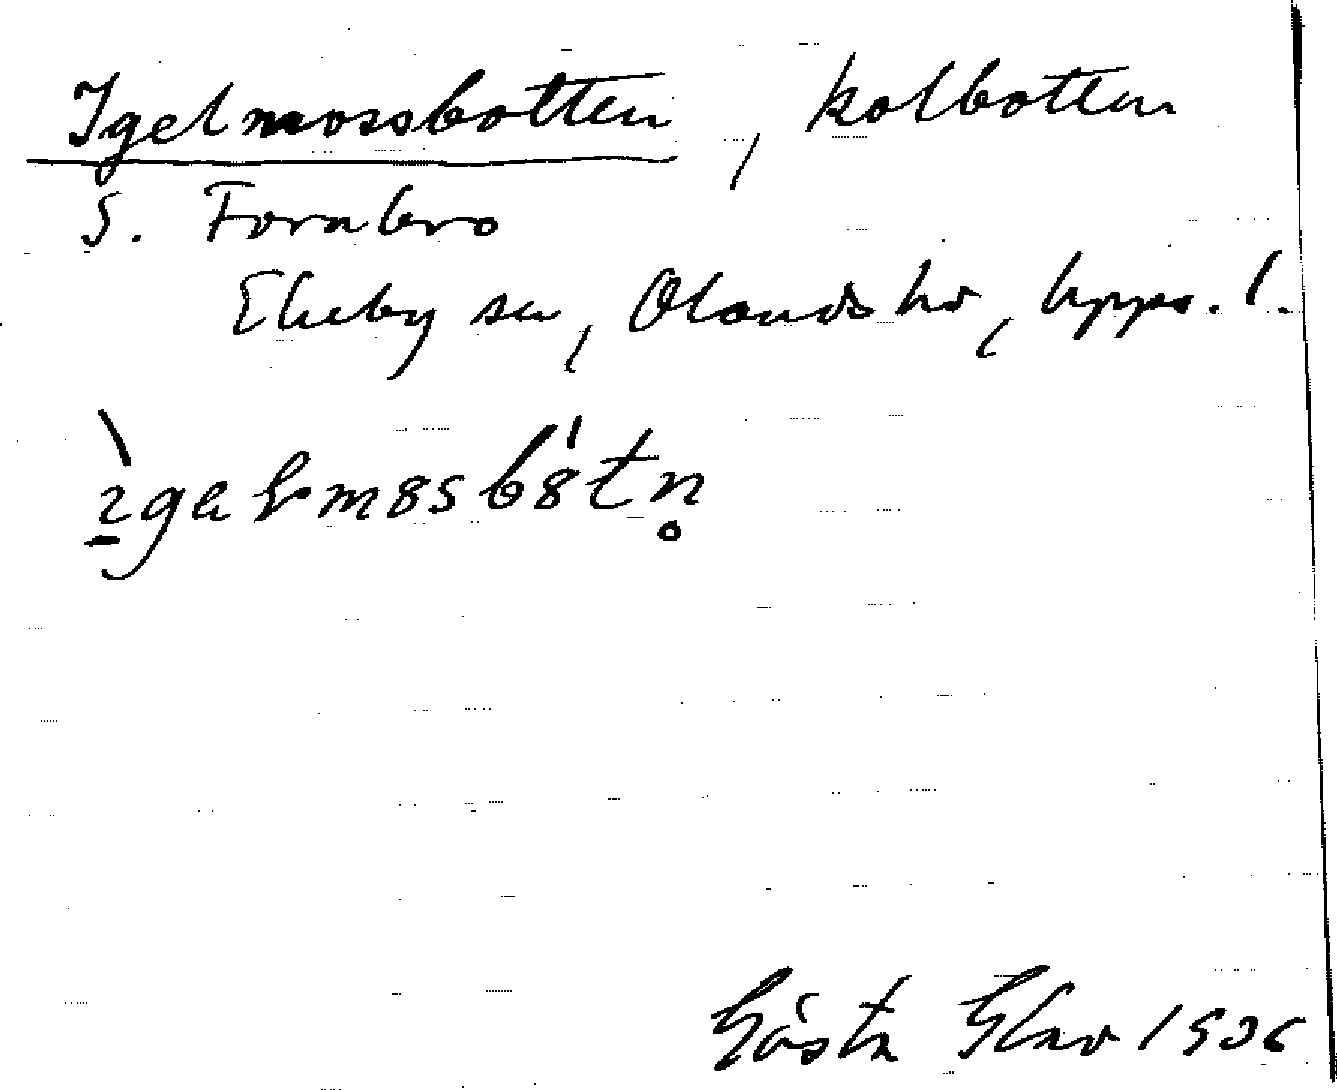 Igelmossbotten, kolbotten
S. Fornbro
Ekeby sn, Olands hd, Upps. l.
Gösta 1936